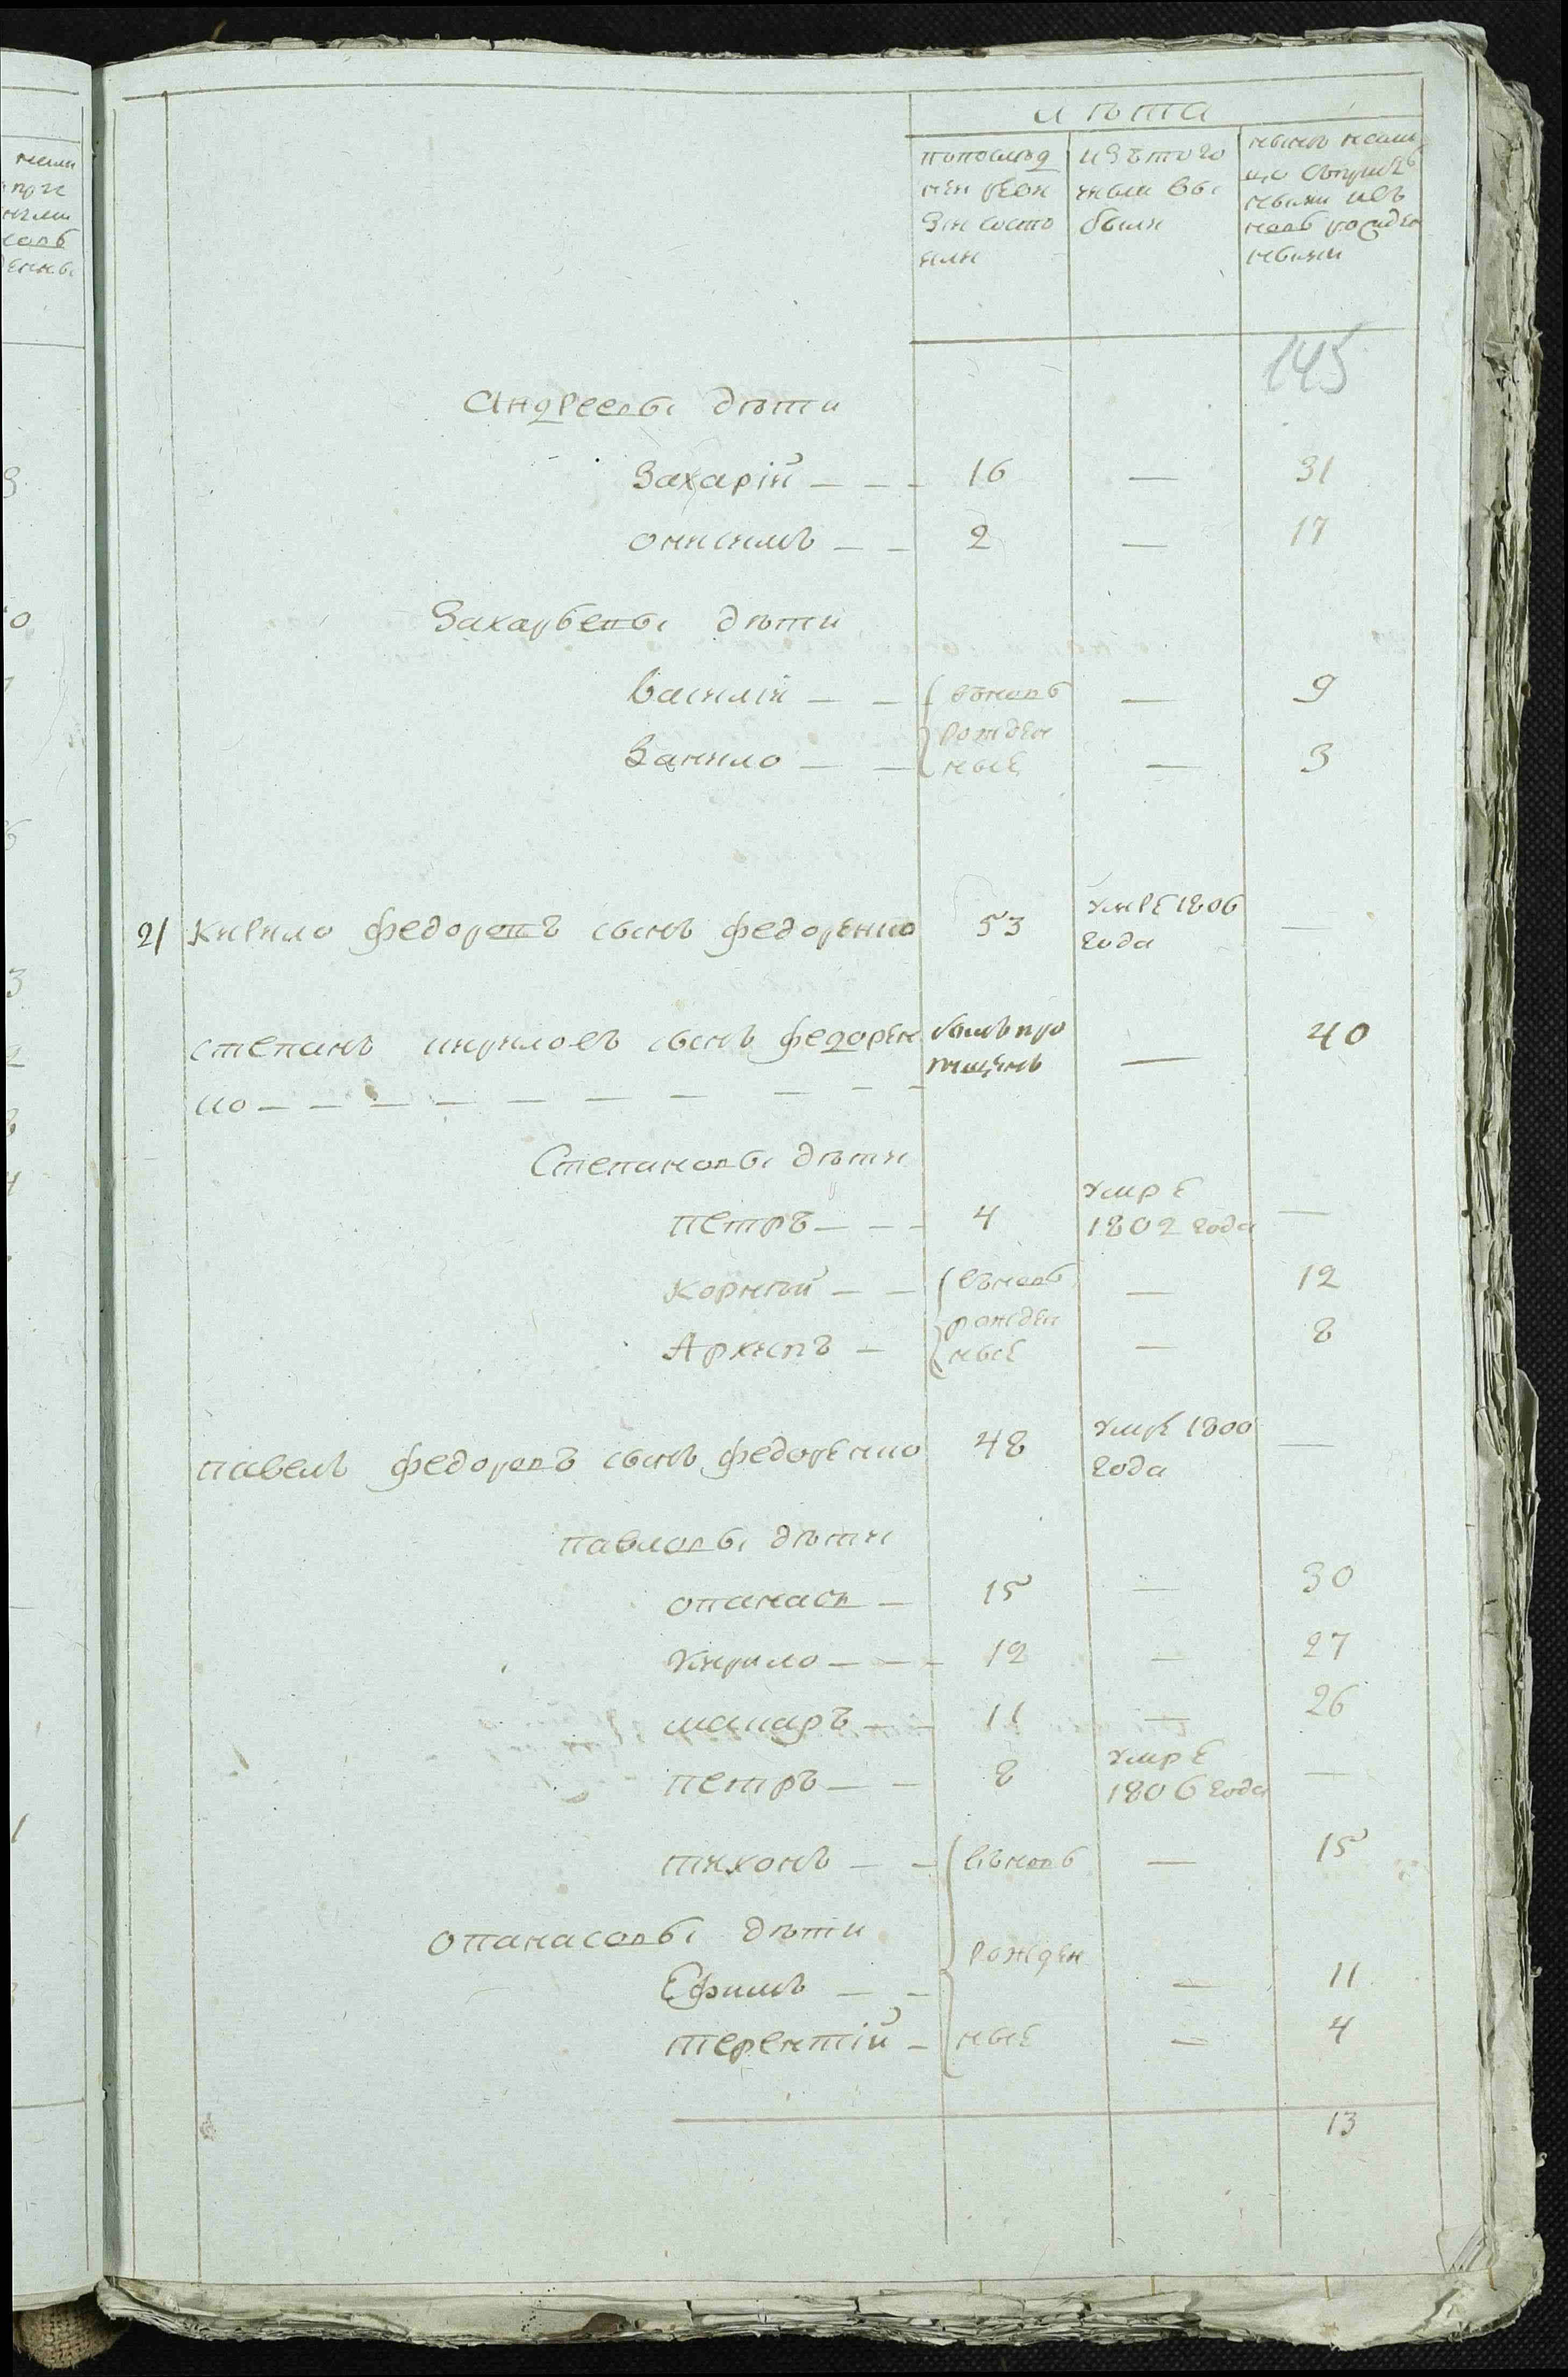 лѣта
попослѣд
ней реви
зіи состо
яли
изътого
числа вы
были
нынѣ налицо
съприбыв
ными ивъ
новь рожден
ными
145
Андреевы дѣти
Захарій — — — 16 — 31
онисимъ — — 2 — 17
Захарьевы дѣти
василій — — вновь — 9
рожден
Данило — — ные — 3
21 Кирило федоровъ сынъ федоренко 53 умре 1806
года —
степанъ кириловъ сынъ федорен былъ про 40
ко — — — — — — — — — — пущенъ —
Степановы дѣти
петръ — — — 4 умре
1802 года —
Корнѣй — — въновь — 12
рожден
Архипъ — ные — 8
павелъ федоровъ сынъ федоренко 48 умре 1800
года —
павловы дѣти
опанасъ — 15 — 30
Кирило — — — 12 — 27
макаръ — — 11 — 26
петръ — — 8 умре
1806 года —
тихонъ — — въновь — 15
опанасовы дѣти
рожден
Ефимъ — — — 11
терентій — ные — 4
13